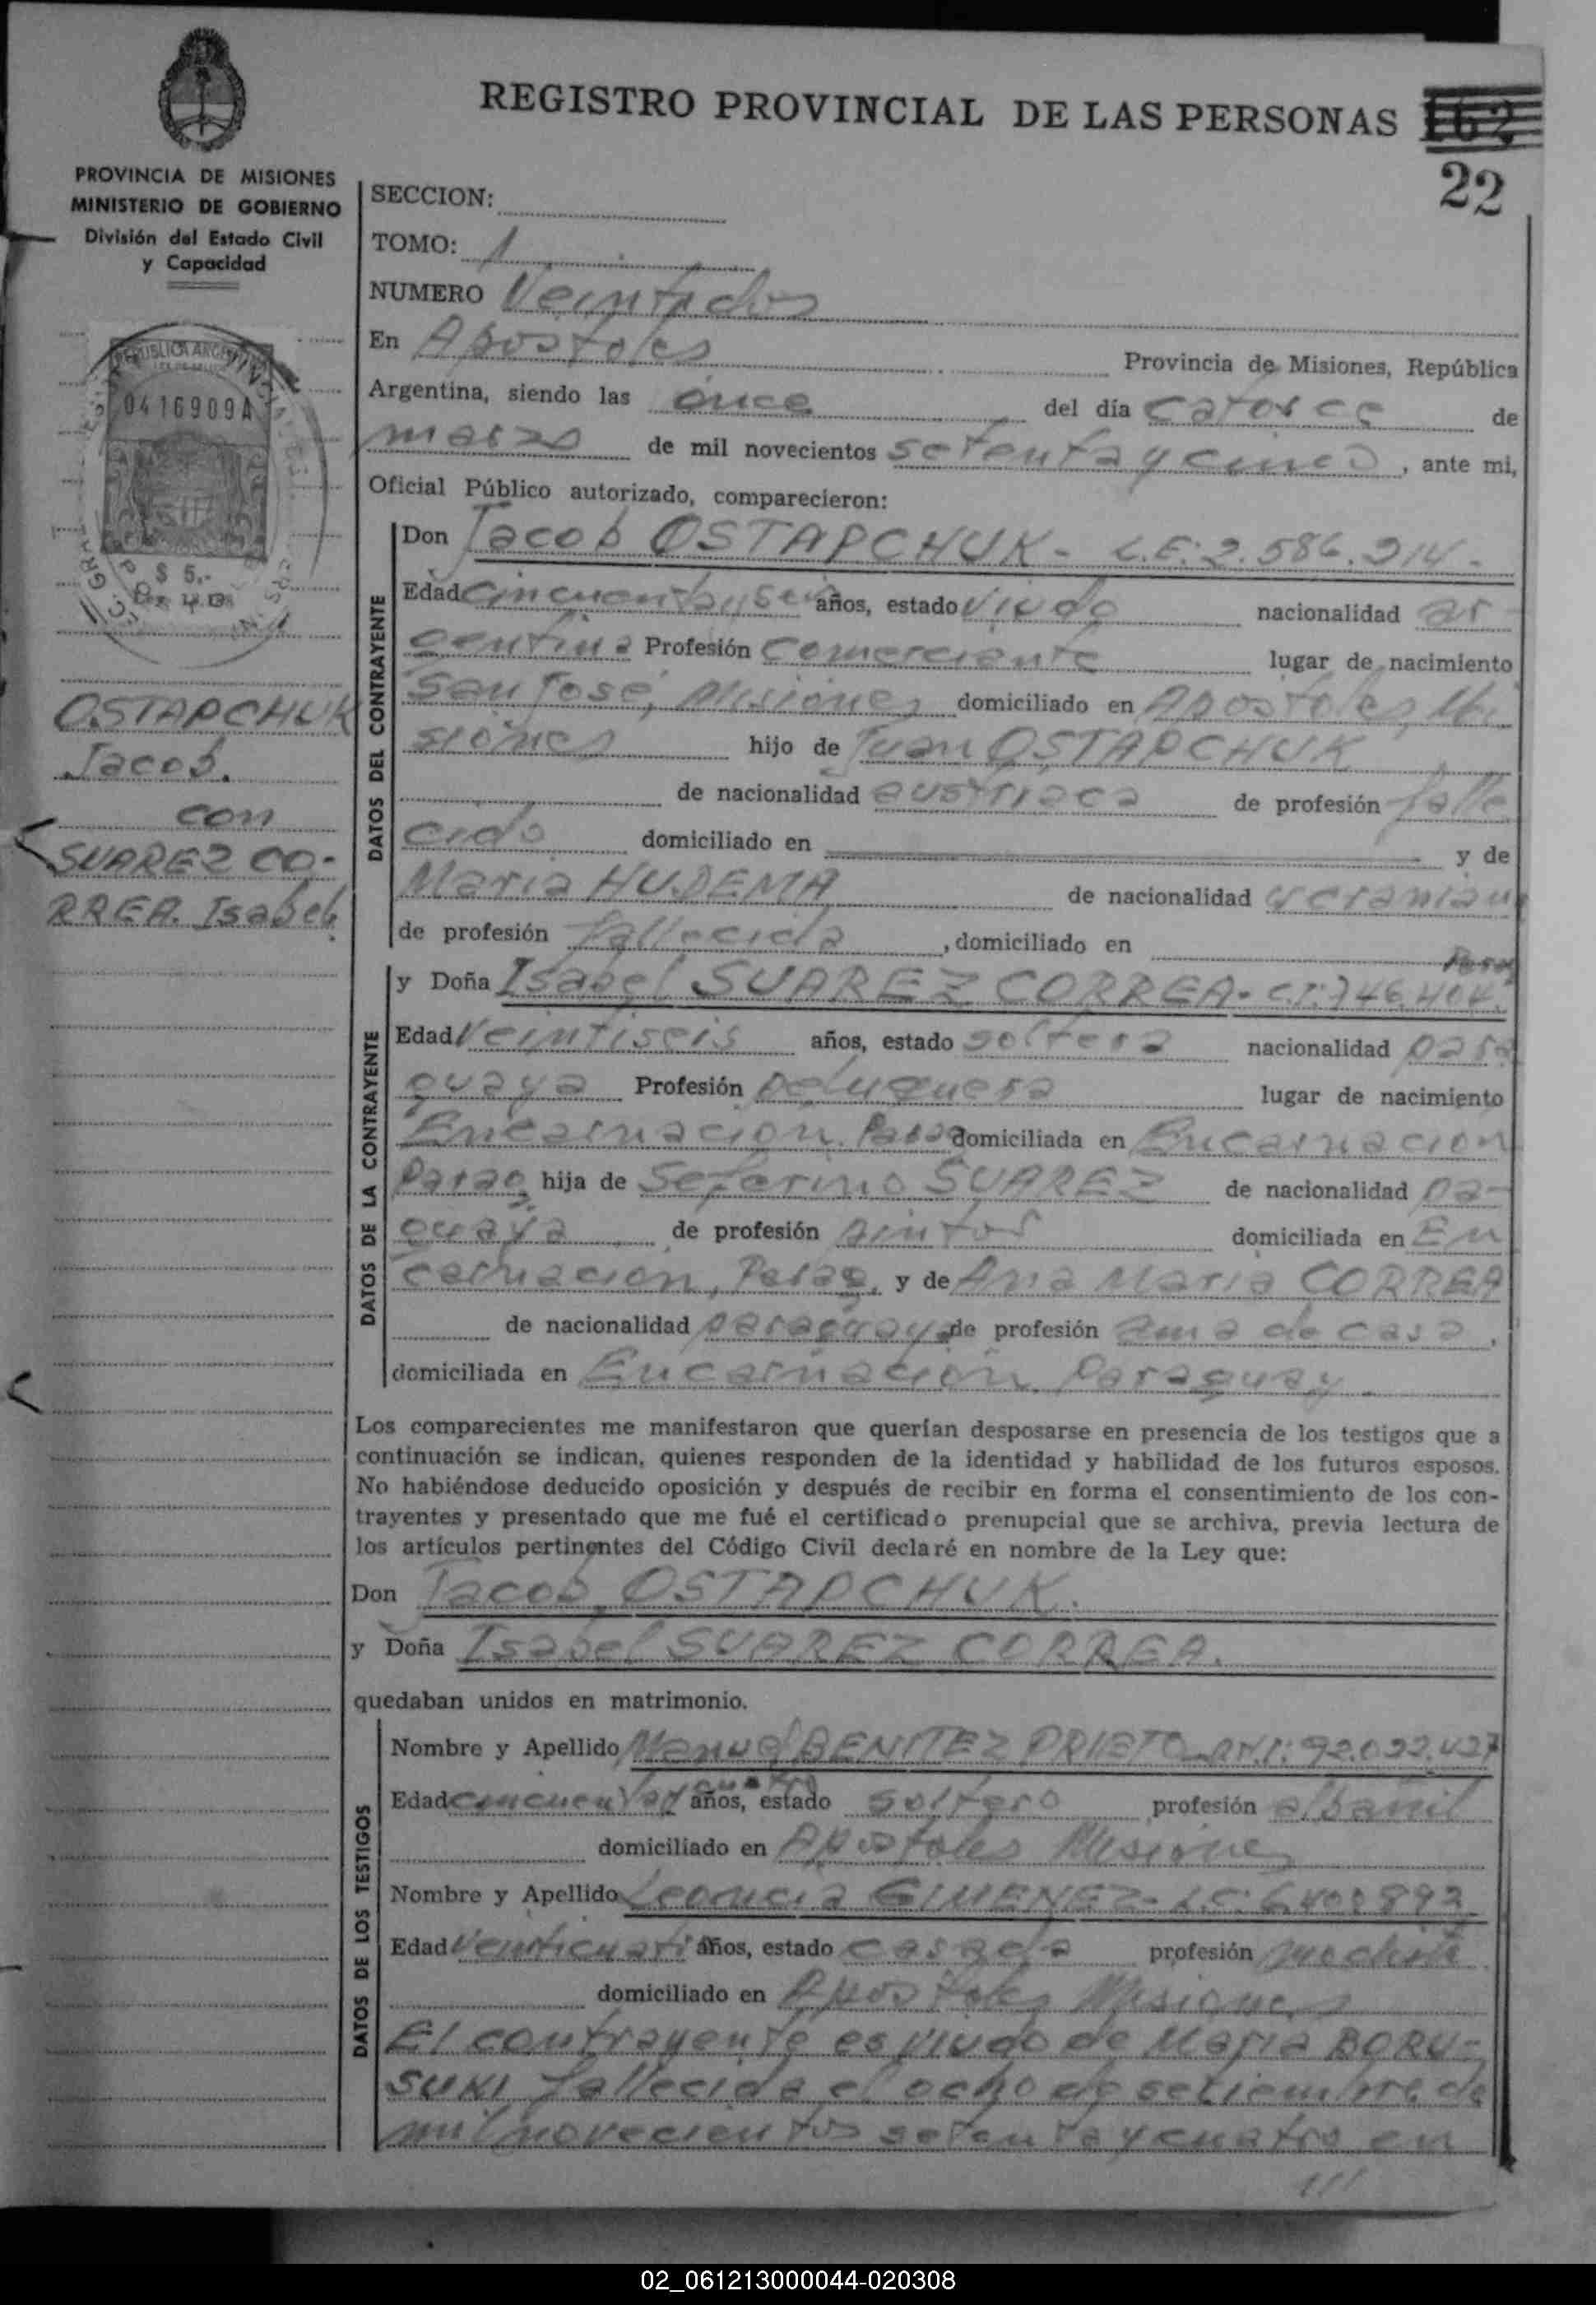 REGISTRO PROVINCIAL DE LAS PERSONAS 162
22
PROVINCIA DE MISIONES
MINISTERIO DE GOBIERNO
División del Estado Civil
y Capacidad
REPUBLICA ARGENTINA
0416909A
$ 5.-
OSTAPCHUK
Jacob.
con
SUAREZ CO-
RREA. Isabel
SECCION:
TOMO: 1
NUMERO Veintidos
En Apostoles Provincia de Misiones, República
Argentina, siendo las once del día catorce de
marzo de mil novecientos setenta y cinco, ante mi,
Oficial Público autorizado, comparecieron:
DATOS DEL CONTRAYENTE
Don Jacob OSTAPCHUK - L.E: 2.586.214 -
Edad Cincuenta y seis años, estado viudo nacionalidad ar
gentina Profesión Comerciante lugar de nacimiento
San José, Misiones domiciliado en Apostoles, Mi
siones hijo de Juan OSTAPCHUK
de nacionalidad austriaca de profesión falle
cido domiciliado en y de
Maria HUDEMA de nacionalidad ucraniana
de profesión fallecida, domiciliado en
DATOS DE LA CONTRAYENTE
y Doña Isabel SUAREZ CORREA - C.I: 746.404. Parag
Edad Veintiseis años, estado soltera nacionalidad para
guaya Profesión Peluquera lugar de nacimiento
Encarnacion. Parag domiciliada en Encarnacion
Parag, hija de Seferino SUAREZ de nacionalidad pa-
guaya de profesión pintor domiciliada en En
carnacion, Parag, y de Ana Maria CORREA
de nacionalidad paraguaya de profesión ama de casa,
domiciliada en Encarnacion Paraguay
Los comparecientes me manifestaron que querían desposarse en presencia de los testigos que a
continuación se indican, quienes responden de la identidad y habilidad de los futuros esposos.
No habiéndose deducido oposición y después de recibir en forma el consentimiento de los con-
trayentes y presentado que me fué el certificado prenupcial que se archiva, previa lectura de
los artículos pertinentes del Código Civil declaré en nombre de la Ley que:
Don Jacob OSTAPCHUK.
y Doña Isabel SUAREZ CORREA.
quedaban unidos en matrimonio.
DATOS DE LOS TESTIGOS
Nombre y Apellido Manuel BENITEZ PRIETO - D.N.I: 92.022.427
Edad cincuenta y cuatro años, estado soltero profesión albañil
domiciliado en Apostoles Misiones
Nombre y Apellido Leoncia GIMENEZ - L.C: 6.408893
Edad Veinticuatro años, estado casada profesión modista
domiciliado en Apostoles Misiones
El contrayente es viudo de Maria BORU-
SUKI fallecida el ocho de setiembre de
mil novecientos setenta y cuatro en
///
02_061213000044-020308